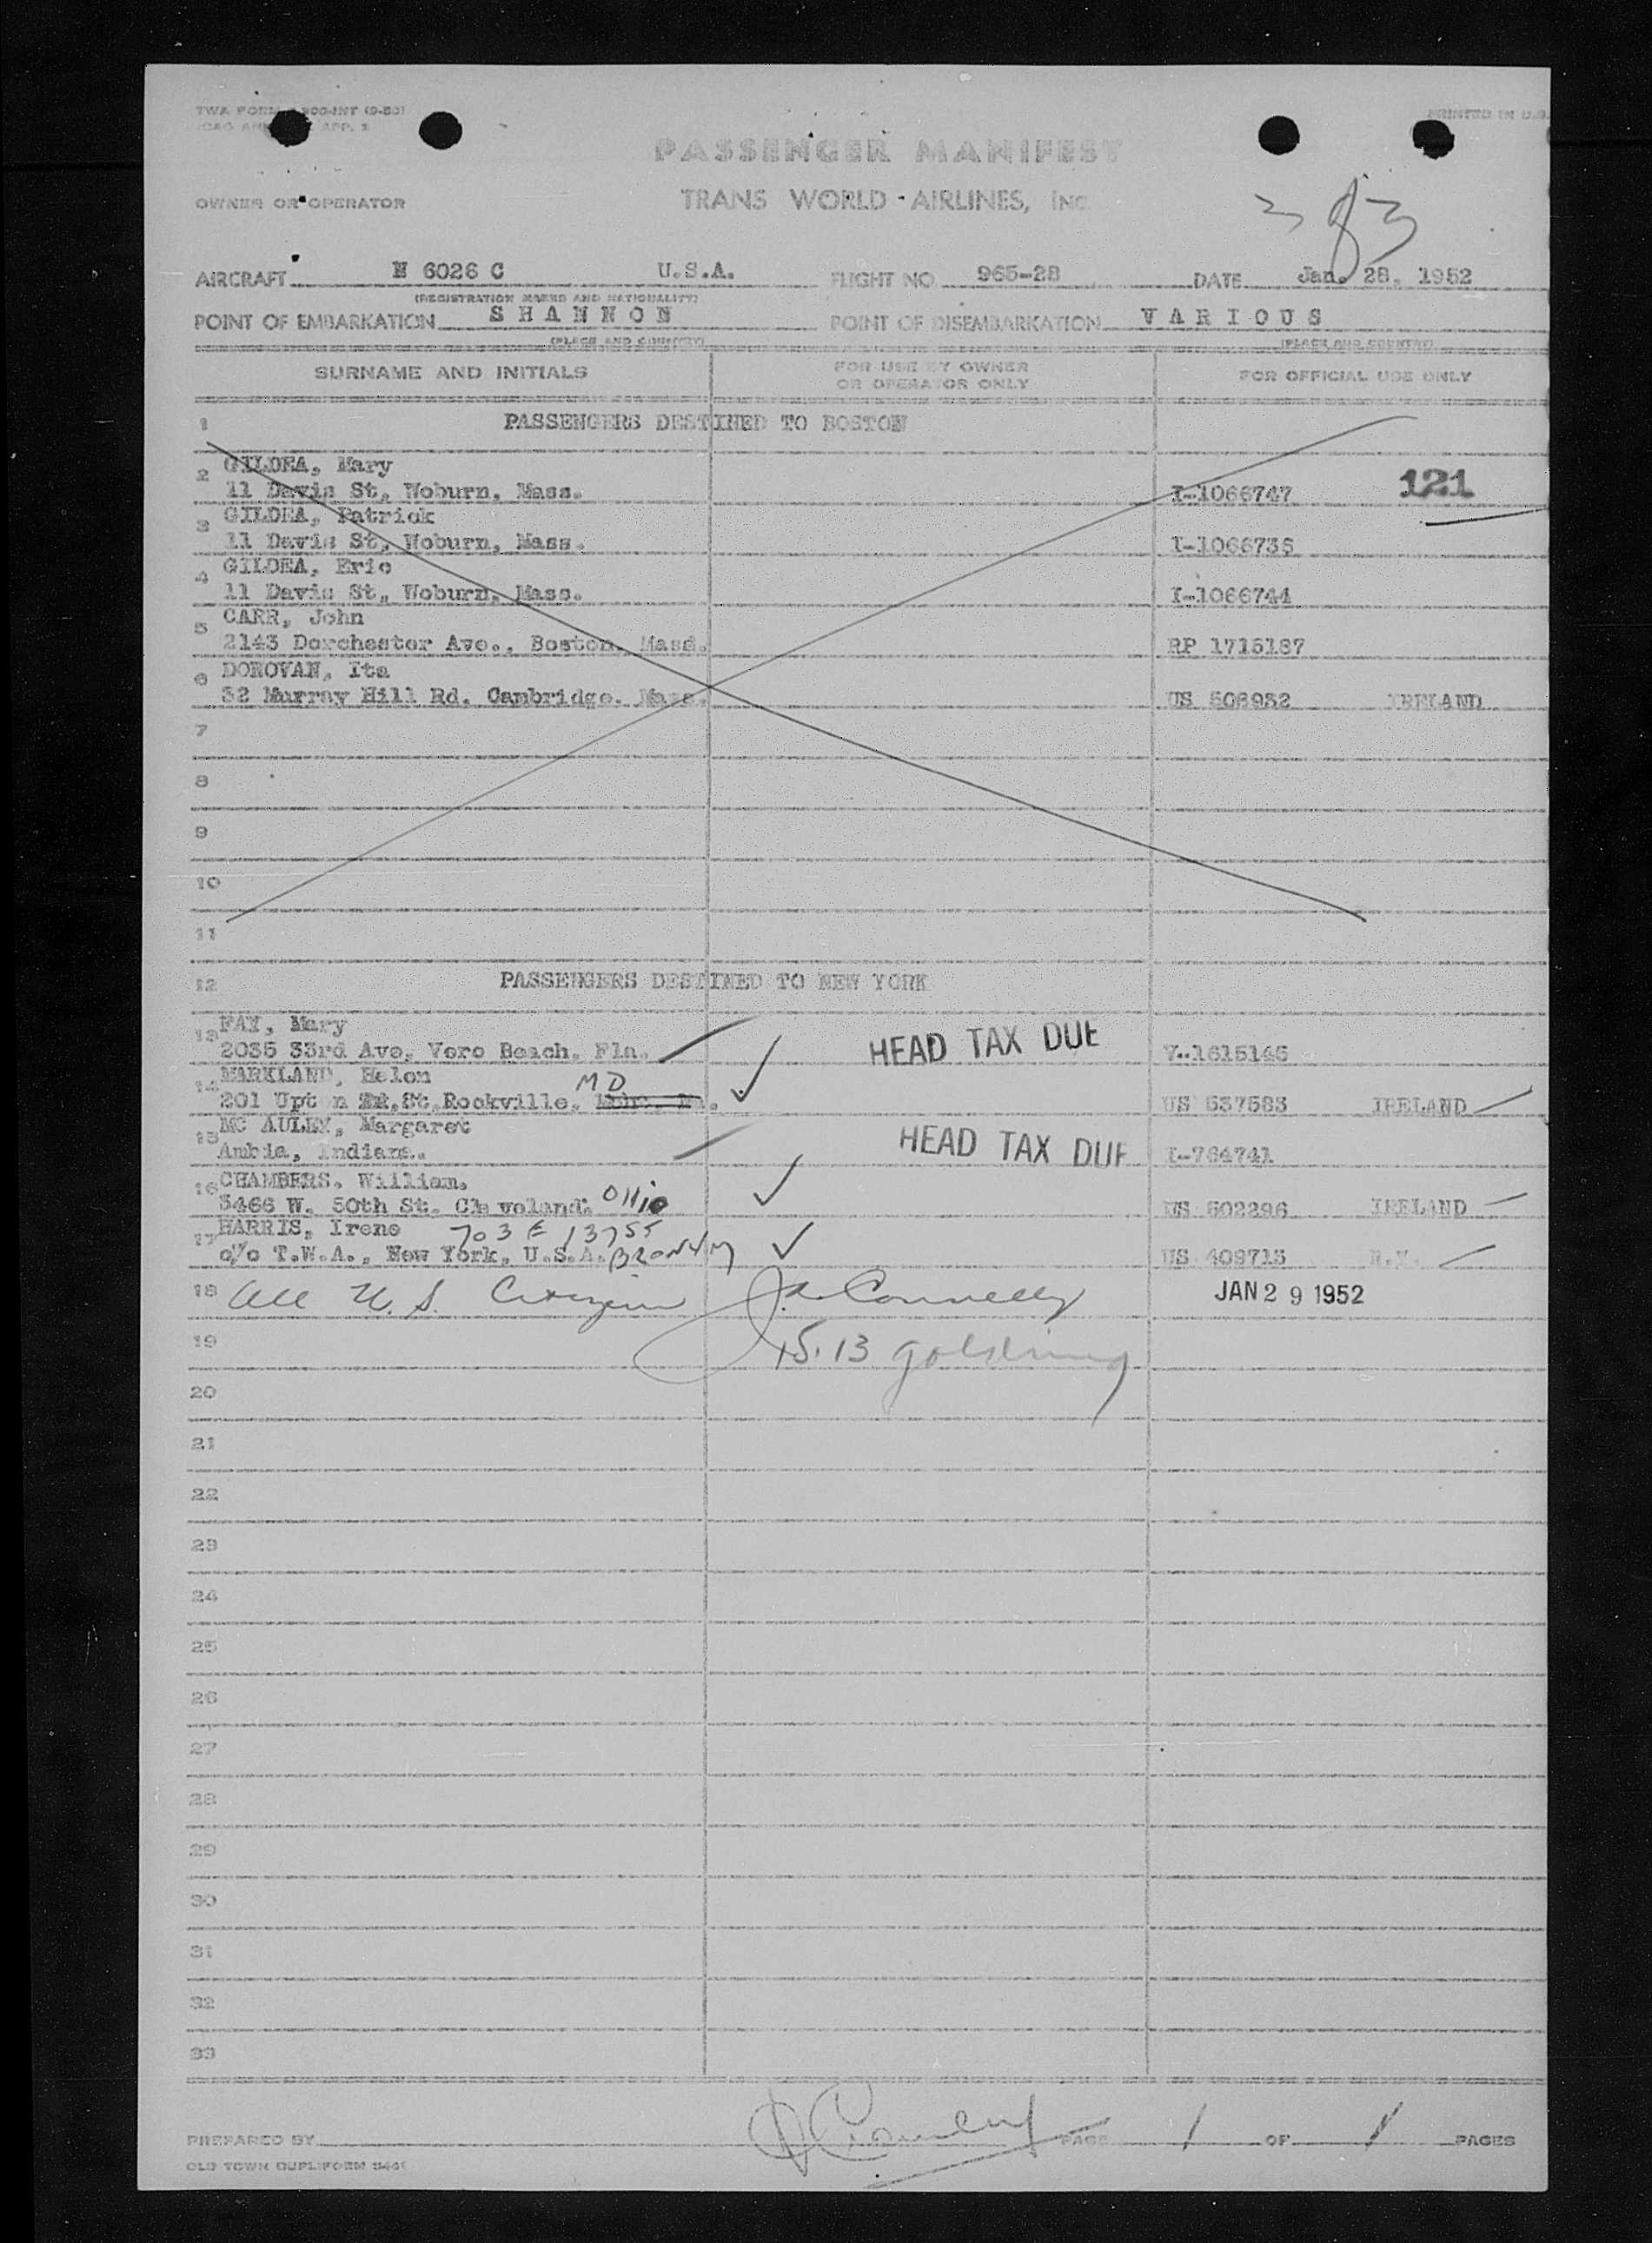 TWA FORM 200-INT (9-50)
ICAO ANNEX APP. 3
PRINTED IN U.S.
PASSENGER MANIFEST
OWNER OR OPERATOR
TRANS WORLD AIRLINES, INC.
383
AIRCRAFT N 6026 C U.S.A. FLIGHT NO. 965-28 DATE Jan. 28, 1952
(REGISTRATION MARKS AND NATIONALITY)
POINT OF EMBARKATION SHANNON POINT OF DISEMBARKATION VARIOUS
(PLACE AND COUNTRY) (PLACE AND COUNTRY)
SURNAME AND INITIALS FOR USE BY OWNER OR OPERATOR ONLY FOR OFFICIAL USE ONLY
1 PASSENGERS DESTINED TO BOSTON
2 GILDEA, Mary
11 Davis St, Woburn, Mass. I-1066747 121
3 GILDEA, Patrick
11 Davis St, Woburn, Mass. I-1066735
4 GILDEA, Eric
11 Davis St, Woburn, Mass. I-1066744
5 CARR, John
2143 Dorchester Ave., Boston, Mass. RP 1715187
6 DOROVAN, Ita
32 Murray Hill Rd. Cambridge. Mass. US 506932 IRELAND
7
8
9
10
11
12 PASSENGERS DESTINED TO NEW YORK
13 FAY, Mary
2035 33rd Ave, Vero Beach, Fla. HEAD TAX DUE V-1615145
14 MARKLAND, Helen MD
201 Upton St, Rockville, US 537583 IRELAND
15 MC AULEY, Margaret
Ambia, Indiana. HEAD TAX DUE I-764741
16 CHAMBERS, William.
3466 W. 50th St. Cleveland. Ohio US 502296 IRELAND
17 HARRIS, Irene 703 E 137 St
c/o T.W.A., New York, U.S.A. BRONX NY US 409713 N.Y.
18 All U.S. Citizens J. Connelly JAN 29 1952
19 15.13 Goldring
20
21
22
23
24
25
26
27
28
29
30
31
32
33
PREPARED BY PAGE 1 OF 1 PAGES
OLD TOWN DUPLIFORM